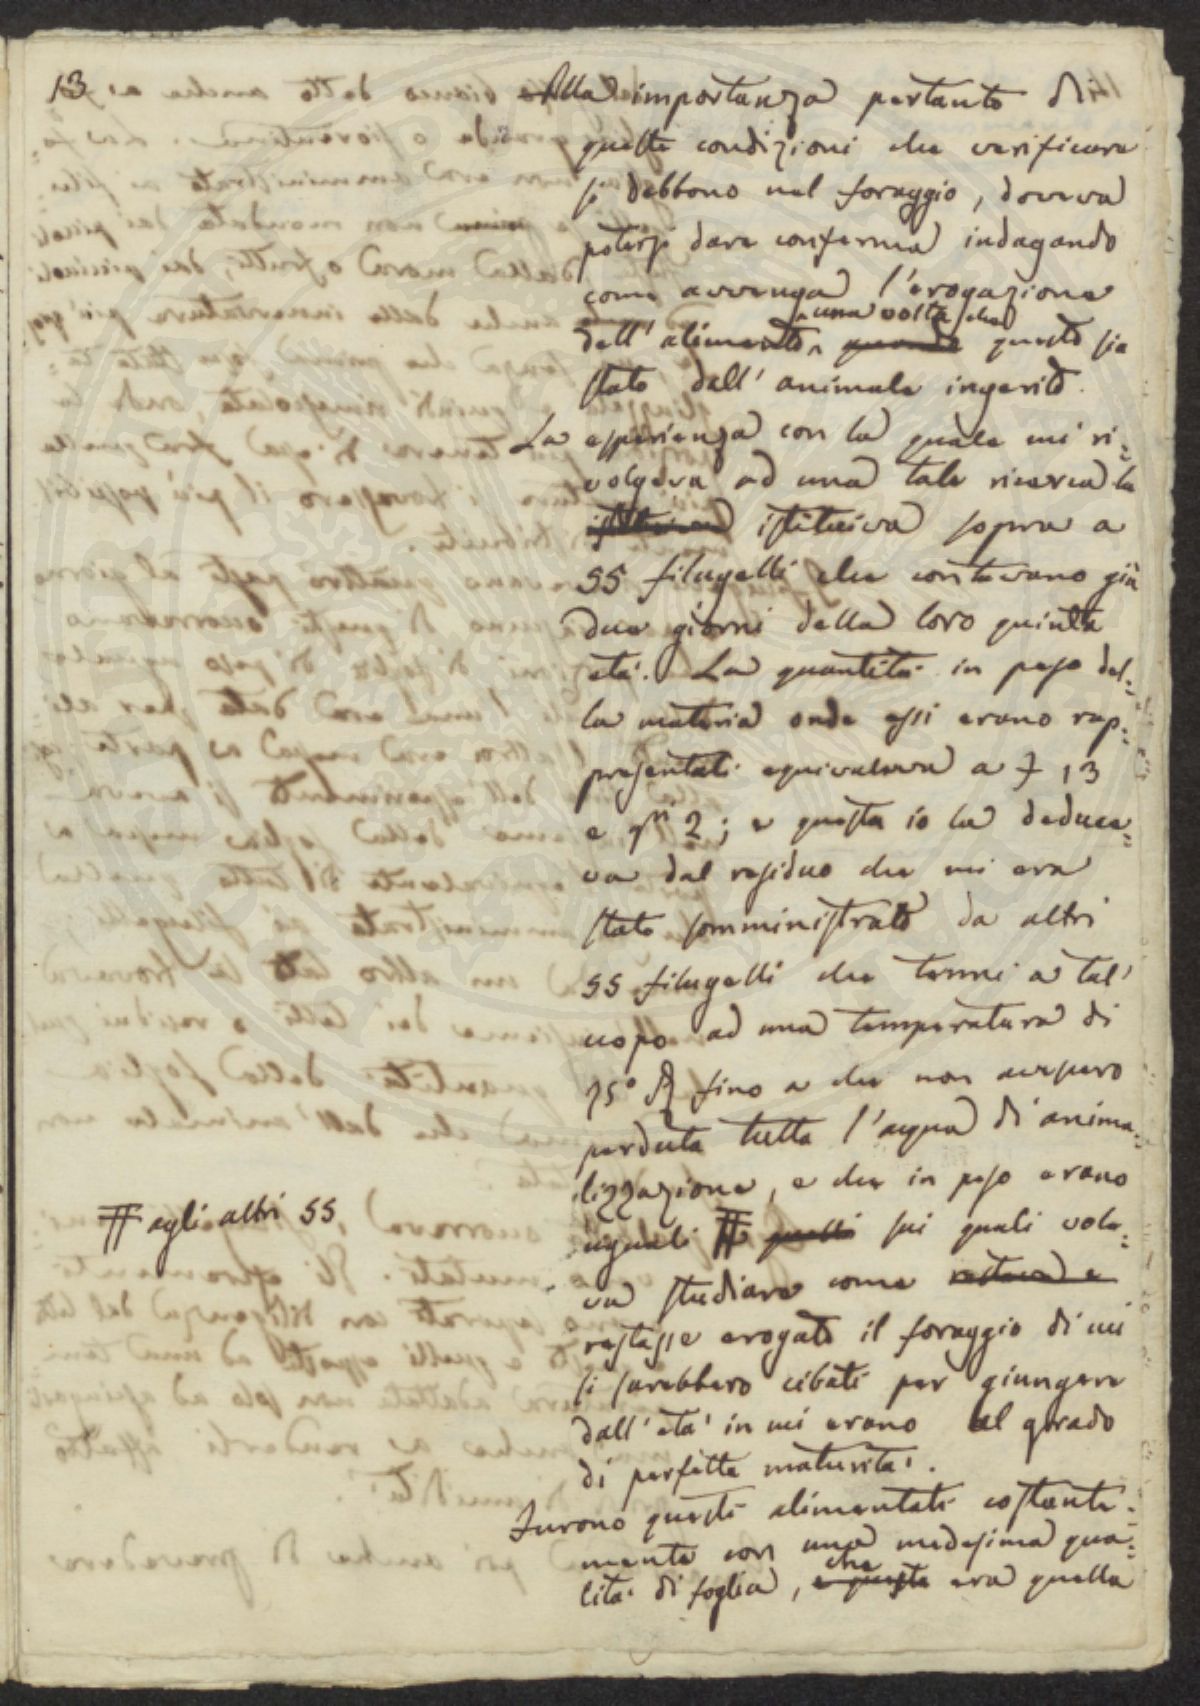 13
Alla importanza pertanto di
queste condizioni che verificare
si debbono nel foraggio, doveva
potersi dare conferma indagando
come avvenga l'erogazione
una volta che
dell'alimento, quando questo sia
stato dall'animale ingerito.
La esperienza con la quale mi ri=
volgeva ad una tale ricerca la
istituiva sopra a
55 filugelli che contavano già
due giorni della loro quinta
età. La quantità in peso del=
la materia onde essi erano rap=
presentati equivaleva a 13
e gni 2; e questa io la deduce=
va dal residuo che mi era
stato somministrato da altri
55 filugelli che tenni a tal'
uopo ad una temperatura di
75° R fino a che non avessero
perduta tutta l'acqua di anima=
lizzazione, e che in peso erano
agli altri 55
uguali quelli sui quali vole=
va studiare come restava e
restasse erogato il foraggio di cui
si sarebbero cibati per giungere
dall'età in cui erano al grado
di perfetta maturità.
Furono questi alimentati costante=
mente con una medesima qua=
che
lità di foglia, e questa era quella